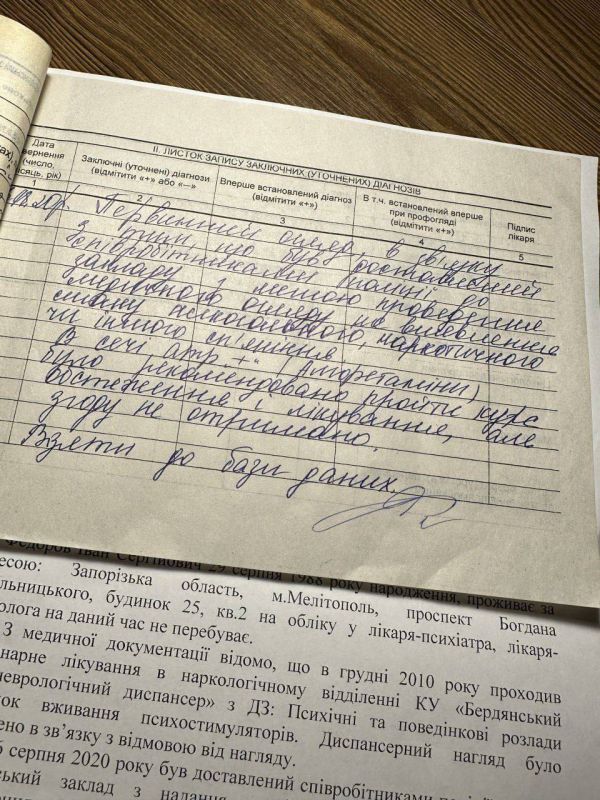 ІІ. ЛИСТОК ЗАПИСУ ЗАКЛЮЧНИХ (УТОЧНЕНИХ) ДІАГНОЗІВ
Дата
вернення
(число,
сяць, рік)
Заключні (уточнені) діагнози
(відмітити «+» або «–»
Вперше встановлений діагноз
(відмітити «+»)
В т.ч. встановлений вперше
при профогляді
(відмітити «+»)
Підпис
лікаря
1
2
3
4
5
Первинний огляд, в зв'язку
з тим що був доставлений
співробітниками поліції до
закладу з метою проведення
медичного огляду на виявлення
стану алкогольного, наркотичного
чи іншого сп'яніння
В сечі амр "+" (амфетаміни)
було рекомендовано пройти курс
обстеження і лікування, але
згоду не отримано.
Взяти до бази даних.
Федоров Іван Сергійович 29 серпня 1988 року народження, проживає за
есою: Запорізька область, м.Мелітополь, проспект Богдана
ельницького, будинок 25, кв.2 на обліку у лікаря-психіатра, лікаря-
олога на даний час не перебуває.
З медичної документації відомо, що в грудні 2010 року проходив
нарне лікування в наркологічному відділенні КУ «Бердянський
неврологічний диспансер» з ДЗ: Психічні та поведінкові розлади
ок вживання психостимуляторів. Диспансерний нагляд було
ено в зв'язку з відмовою від нагляду.
серпня 2020 року був доставлений співробітниками
ський заклад з надання